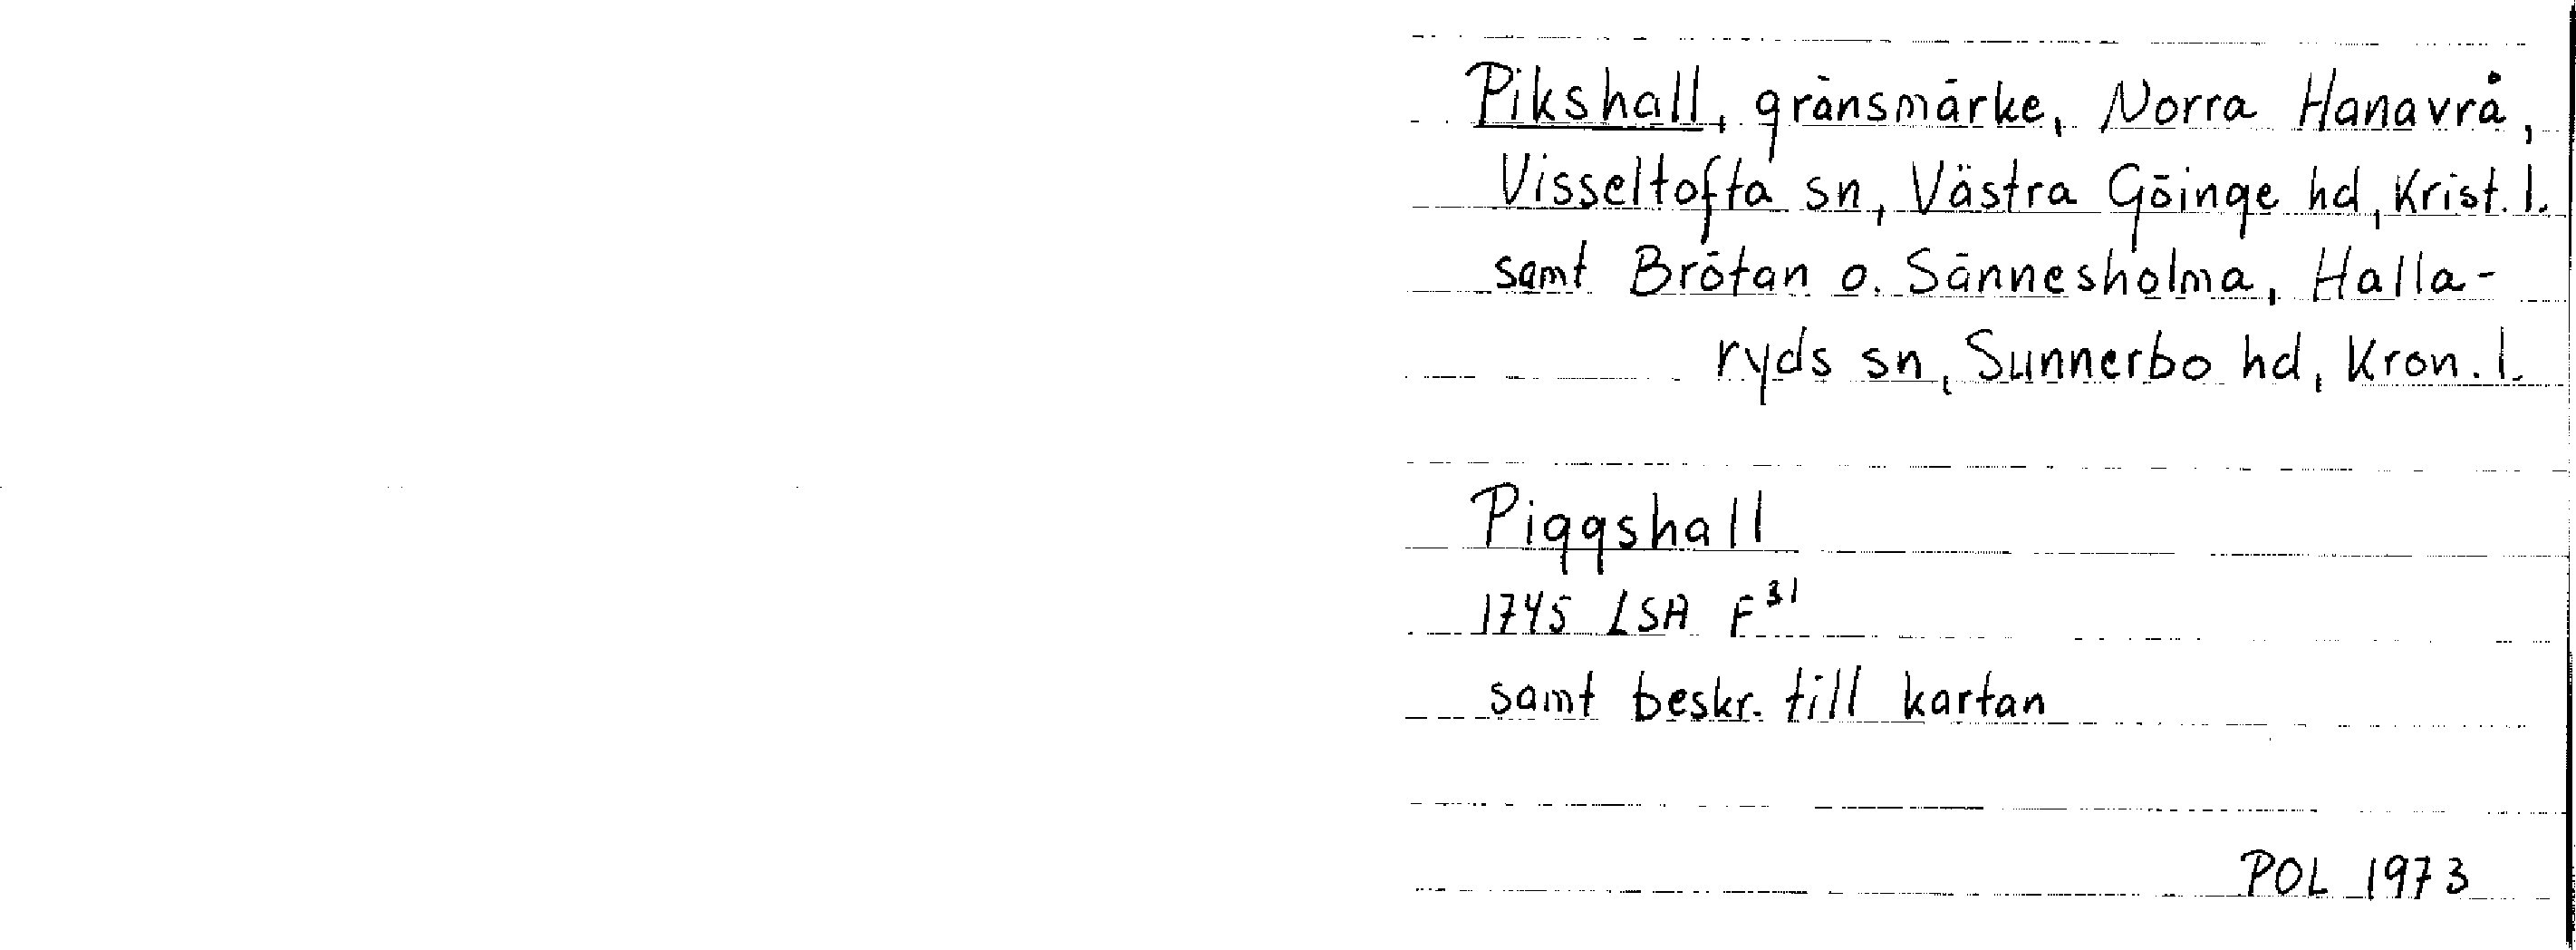 Pikshall, gränsmärke, Norra Hanavrå,
Visseltofta sn, Västra Göinge hd, Krist. l.
samt Brötan o. Sännesholma, Halla-
ryds sn, Sunnerbo hd, Kron. l.
Piggshall
1745 LSA F³¹
samt beskr. till kartan
POL 1973